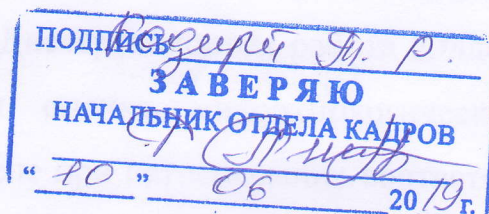 ПОДПИСЬ Т. Р.
ЗАВЕРЯЮ
НАЧАЛЬНИК ОТДЕЛА КАДРОВ
“ 10 ” 06 2019 г.